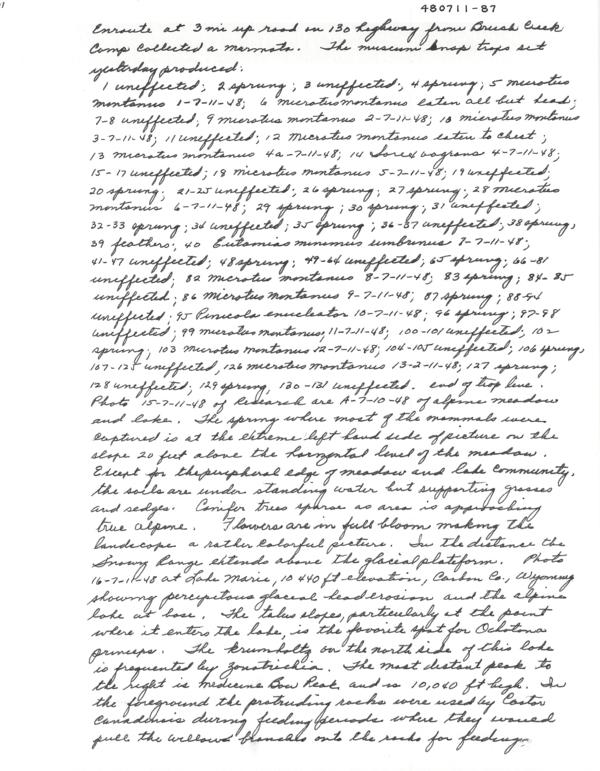 480711-87
Enroute at 3 mi up road on 130 highway from Brush Creek
Camp collected a marmota. The museum snap traps set
yesterday produced:
1 uneffected; 2 sprung; 3 uneffected; 4 sprung; 5 microtus
montanus 1-7-11-48; 6 microtus montanus eaten all but head;
7-8 uneffected; 9 microtus montanus 2-7-11-48; 10 microtus montanus
3-7-11-48; 11 uneffected; 12 microtus montanus eaten to chest;
13 microtus montanus 4a-7-11-48; 14 Sorex vagrans 4-7-11-48;
15-17 uneffected; 18 microtus montanus 5-7-11-48; 19 uneffected;
20 sprung; 21-25 uneffected; 26 sprung; 27 sprung; 28 microtus
montanus 6-7-11-48; 29 sprung; 30 sprung; 31 uneffected;
32-33 sprung; 34 uneffected; 35 sprung; 36-37 uneffected; 38 sprung,
39 feathers; 40 Eutamias minimus umbrinus 7-7-11-48;
41-47 uneffected; 48 sprung; 49-64 uneffected; 65 sprung; 66-81
uneffected; 82 microtus montanus 8-7-11-48; 83 sprung; 84-85
uneffected; 86 microtus montanus 9-7-11-48; 87 sprung; 88-94
uneffected; 95 Pinicola enucleator 10-7-11-48; 96 sprung; 97-98
uneffected; 99 microtus montanus, 11-7-11-48; 100-101 uneffected; 102
sprung; 103 microtus montanus 12-7-11-48; 104-105 uneffected; 106 sprung,
107-125 uneffected, 126 microtus montanus 13-2-11-48; 127 sprung;
128 uneffected; 129 sprung, 130-131 uneffected. end of trap line.
Photo 15-7-11-48 of Research are A-7-10-48 of alpine meadow
and lake. The spring where most of the mammals were
captured is at the extreme left hand side of picture on the
slope 20 feet above the horizontal level of the meadow.
Except for the peripheral edge of meadow and lake community,
the soils are under standing water but supporting grasses
and sedges. Conifer trees sparse as area is approaching
true alpine. Flowers are in full bloom making the
landscape a rather colorful picture. In the distance the
Snowy Range extends above the glacial platform. Photo
16-7-11-48 at Lake Marie, 10440 ft elevation, Carbon Co., Wyoming
showing percipitous glacial head erosion and the alpine
lake at base. The talus slopes, particularly at the point
where it enters the lake, is the favorite spot for Ochotona
princeps. The krumholtz on the north side of this lake
is frequented by zonotrichia. The most distant peak to
the right is Medicine Bow Peak and is 10,040 ft high. In
the foreground the protruding rocks were used by Castor
Canadensis during feeding periods where they would
pull the willows branches onto the rocks for feeding.